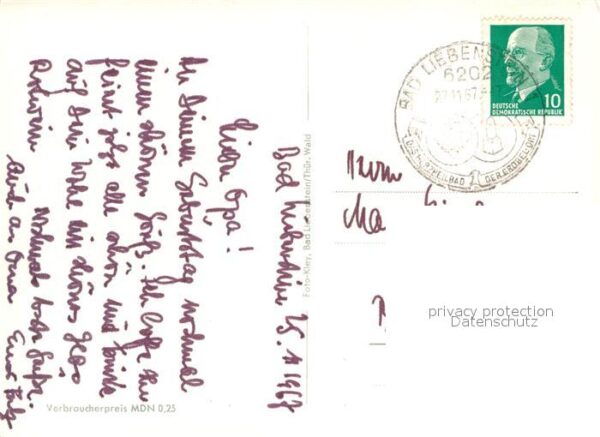 Bad Liebenstein 25.11.1967
Lieber Opa!
An Deinem Geburtstag nochmal
einen schönen Gruß. Ich hoffe Ihr
feiert jetzt alle schön und trinkt
auf Dein Wohl ein schönes Glas
Rotwein. Nochmals beste Grüße
auch an Oma
Herrn
Ma
BAD LIEBENSTEIN
6202
27.11.67
DAS HERZHEILBAD DER
DEUTSCHE
DEMOKRATISCHE REPUBLIK
10
Foto-Kley, Bad Liebenstein/Thür. Wald
Verbraucherpreis MDN 0,25
privacy protection
Datenschutz